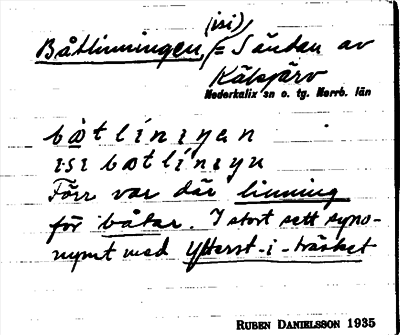 (isi)
Båtlinningen, = S ändan av
Kälsjärv
Nederkalix sn o. tg. Norrb. län
båtlíniŋen
ısı båtlíniŋn
Förr var där linning
för båtar. I stort sett syno-
nymt med Ytterst-i-träsket
RUBEN DANIELSSON 1935